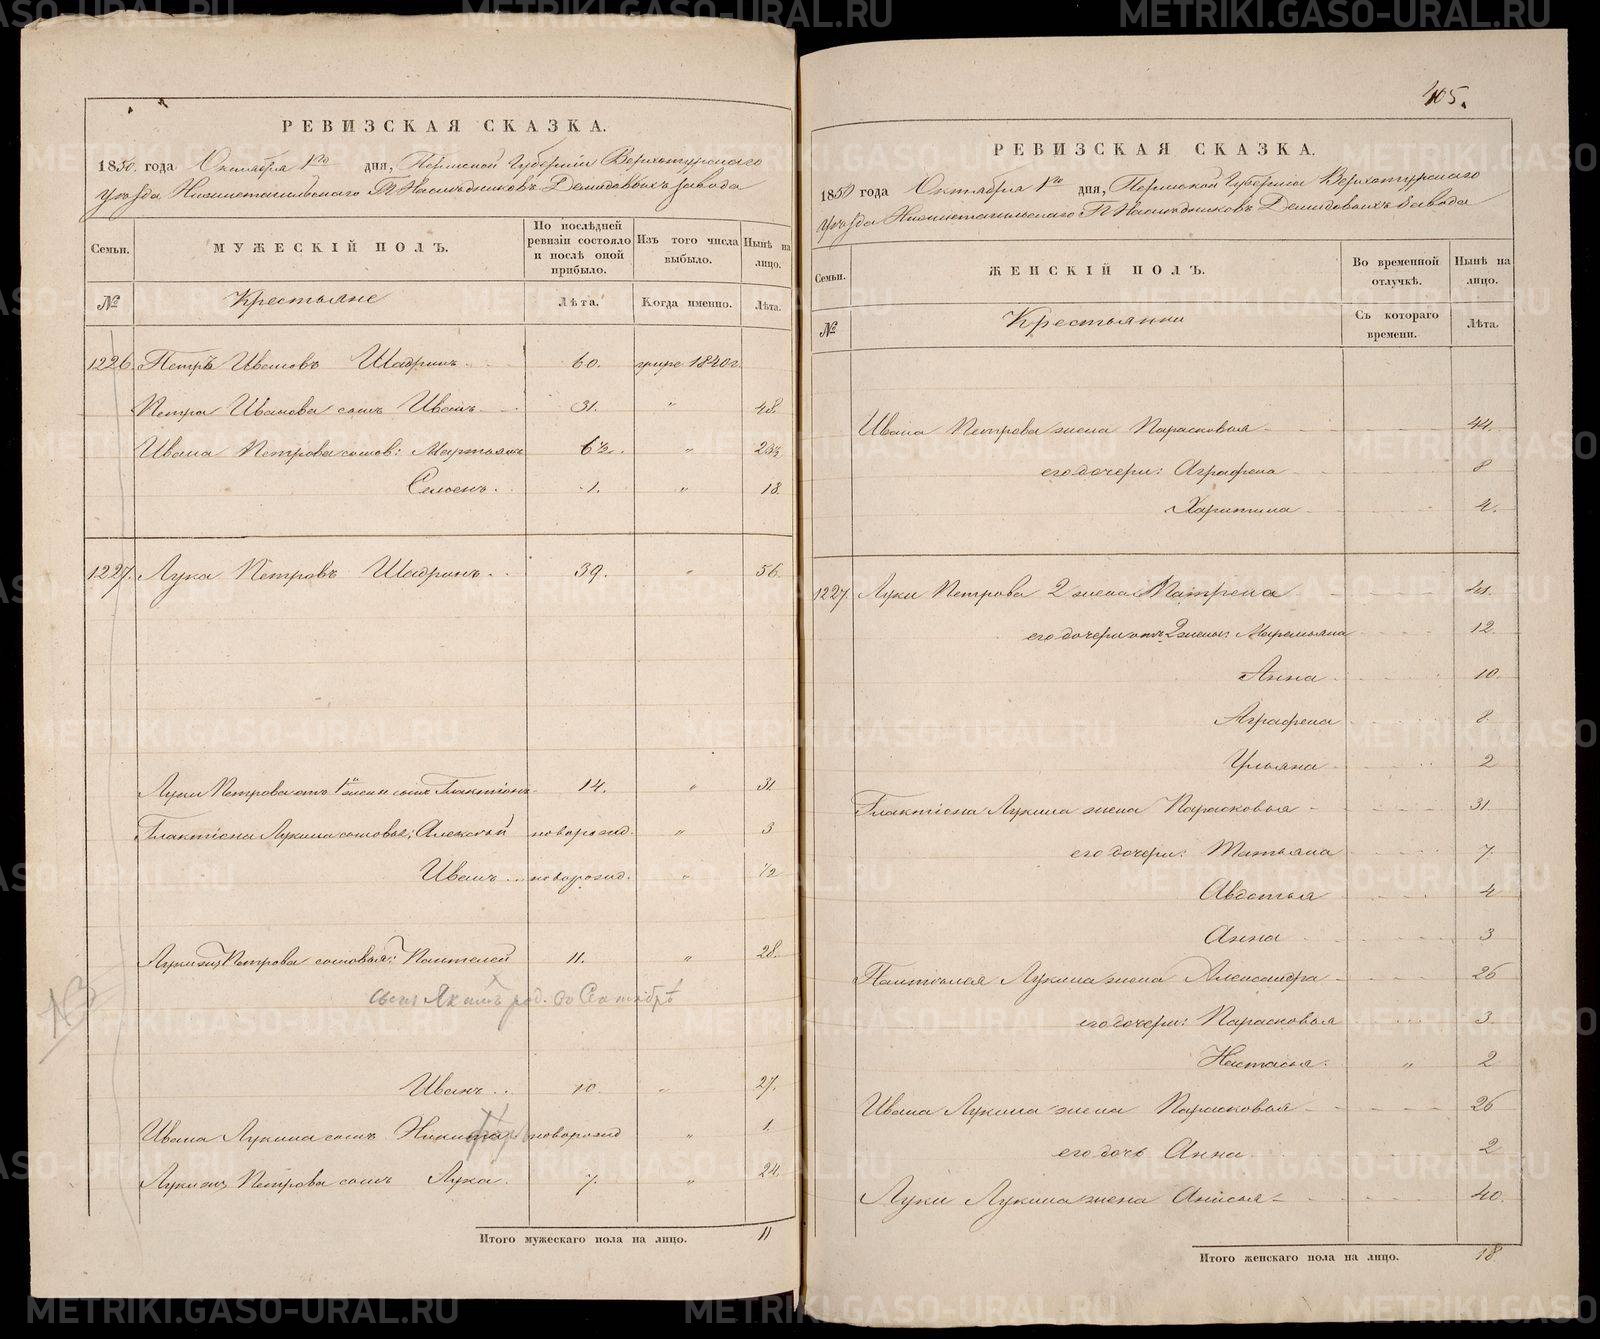 РЕВИЗСКАЯ СКАЗКА.
1850 года Октября 1го дня, Пермской Губерніи Верхотурскаго
Уѣзда Нижнетагильскаго Гг. Наслѣдниковъ Демидовыхъ завода
Семьи. МУЖЕСКІЙ ПОЛЪ. По послѣдней ревизіи состояло и послѣ оной прибыло. Изъ того числа выбыло. Нынѣ на лицо.
№ Крестьяне Лѣта. Когда именно. Лѣта.
1226. Петръ Ивановъ Шадринъ 60. умре 1840 г.
Петра Иванова сынъ Иванъ 31. " 48.
Ивана Петрова сынов: Мартьянъ 6½. " 23½
Семенъ. 1. " 18.
1227. Лука Петровъ Шадринъ 39. " 56.
Луки Петрова отъ 1й жены сынъ Галактіонъ 14. " 31
Галактіона Лукина сыновья: Алексѣй новорожд. " 3
Иванъ новорожд. " ½
Луки Петрова сыновья: Пантелей 11. " 28.
сынъ Якимъ род. въ Сентябрѣ
№3
Иванъ 10 " 27.
Ивана Лукина сынъ Никита новорожд " 1.
Луки Петрова сынъ Лука. 7. " 24.
Итого мужескаго пола на лицо. 11
405.
РЕВИЗСКАЯ СКАЗКА.
1850 года Октября 1го дня, Пермской Губерніи Верхотурскаго
Уѣзда Нижнетагильскаго Гг. Наслѣдниковъ Демидовыхъ завода
Семьи. ЖЕНСКІЙ ПОЛЪ. Во временной отлучкѣ. Нынѣ на лицо.
№ Крестьянки Съ котораго времени. Лѣта.
Ивана Петрова жена Парасковья 44.
его дочери: Аграфена 8
Харитина 4.
1227. Луки Петрова 2 жена Матрена 41.
его дочери отъ 2 жены: Маремьяна 12
Анна 10.
Аграфена 8
Ульяна 2
Галактіона Лукина жена Парасковья 31
его дочери: Татьяна 7
Авдотья 4
Анна 3
Пантелея Лукина жена Александра 26
его дочери: Парасковья 3
Настасья. " 2
Ивана Лукина жена Парасковья 26
его дочь Анна 2
Луки Лукина жена Анисья 40.
Итого женскаго пола на лицо. 18
METRIKI.GASO-URAL.RU